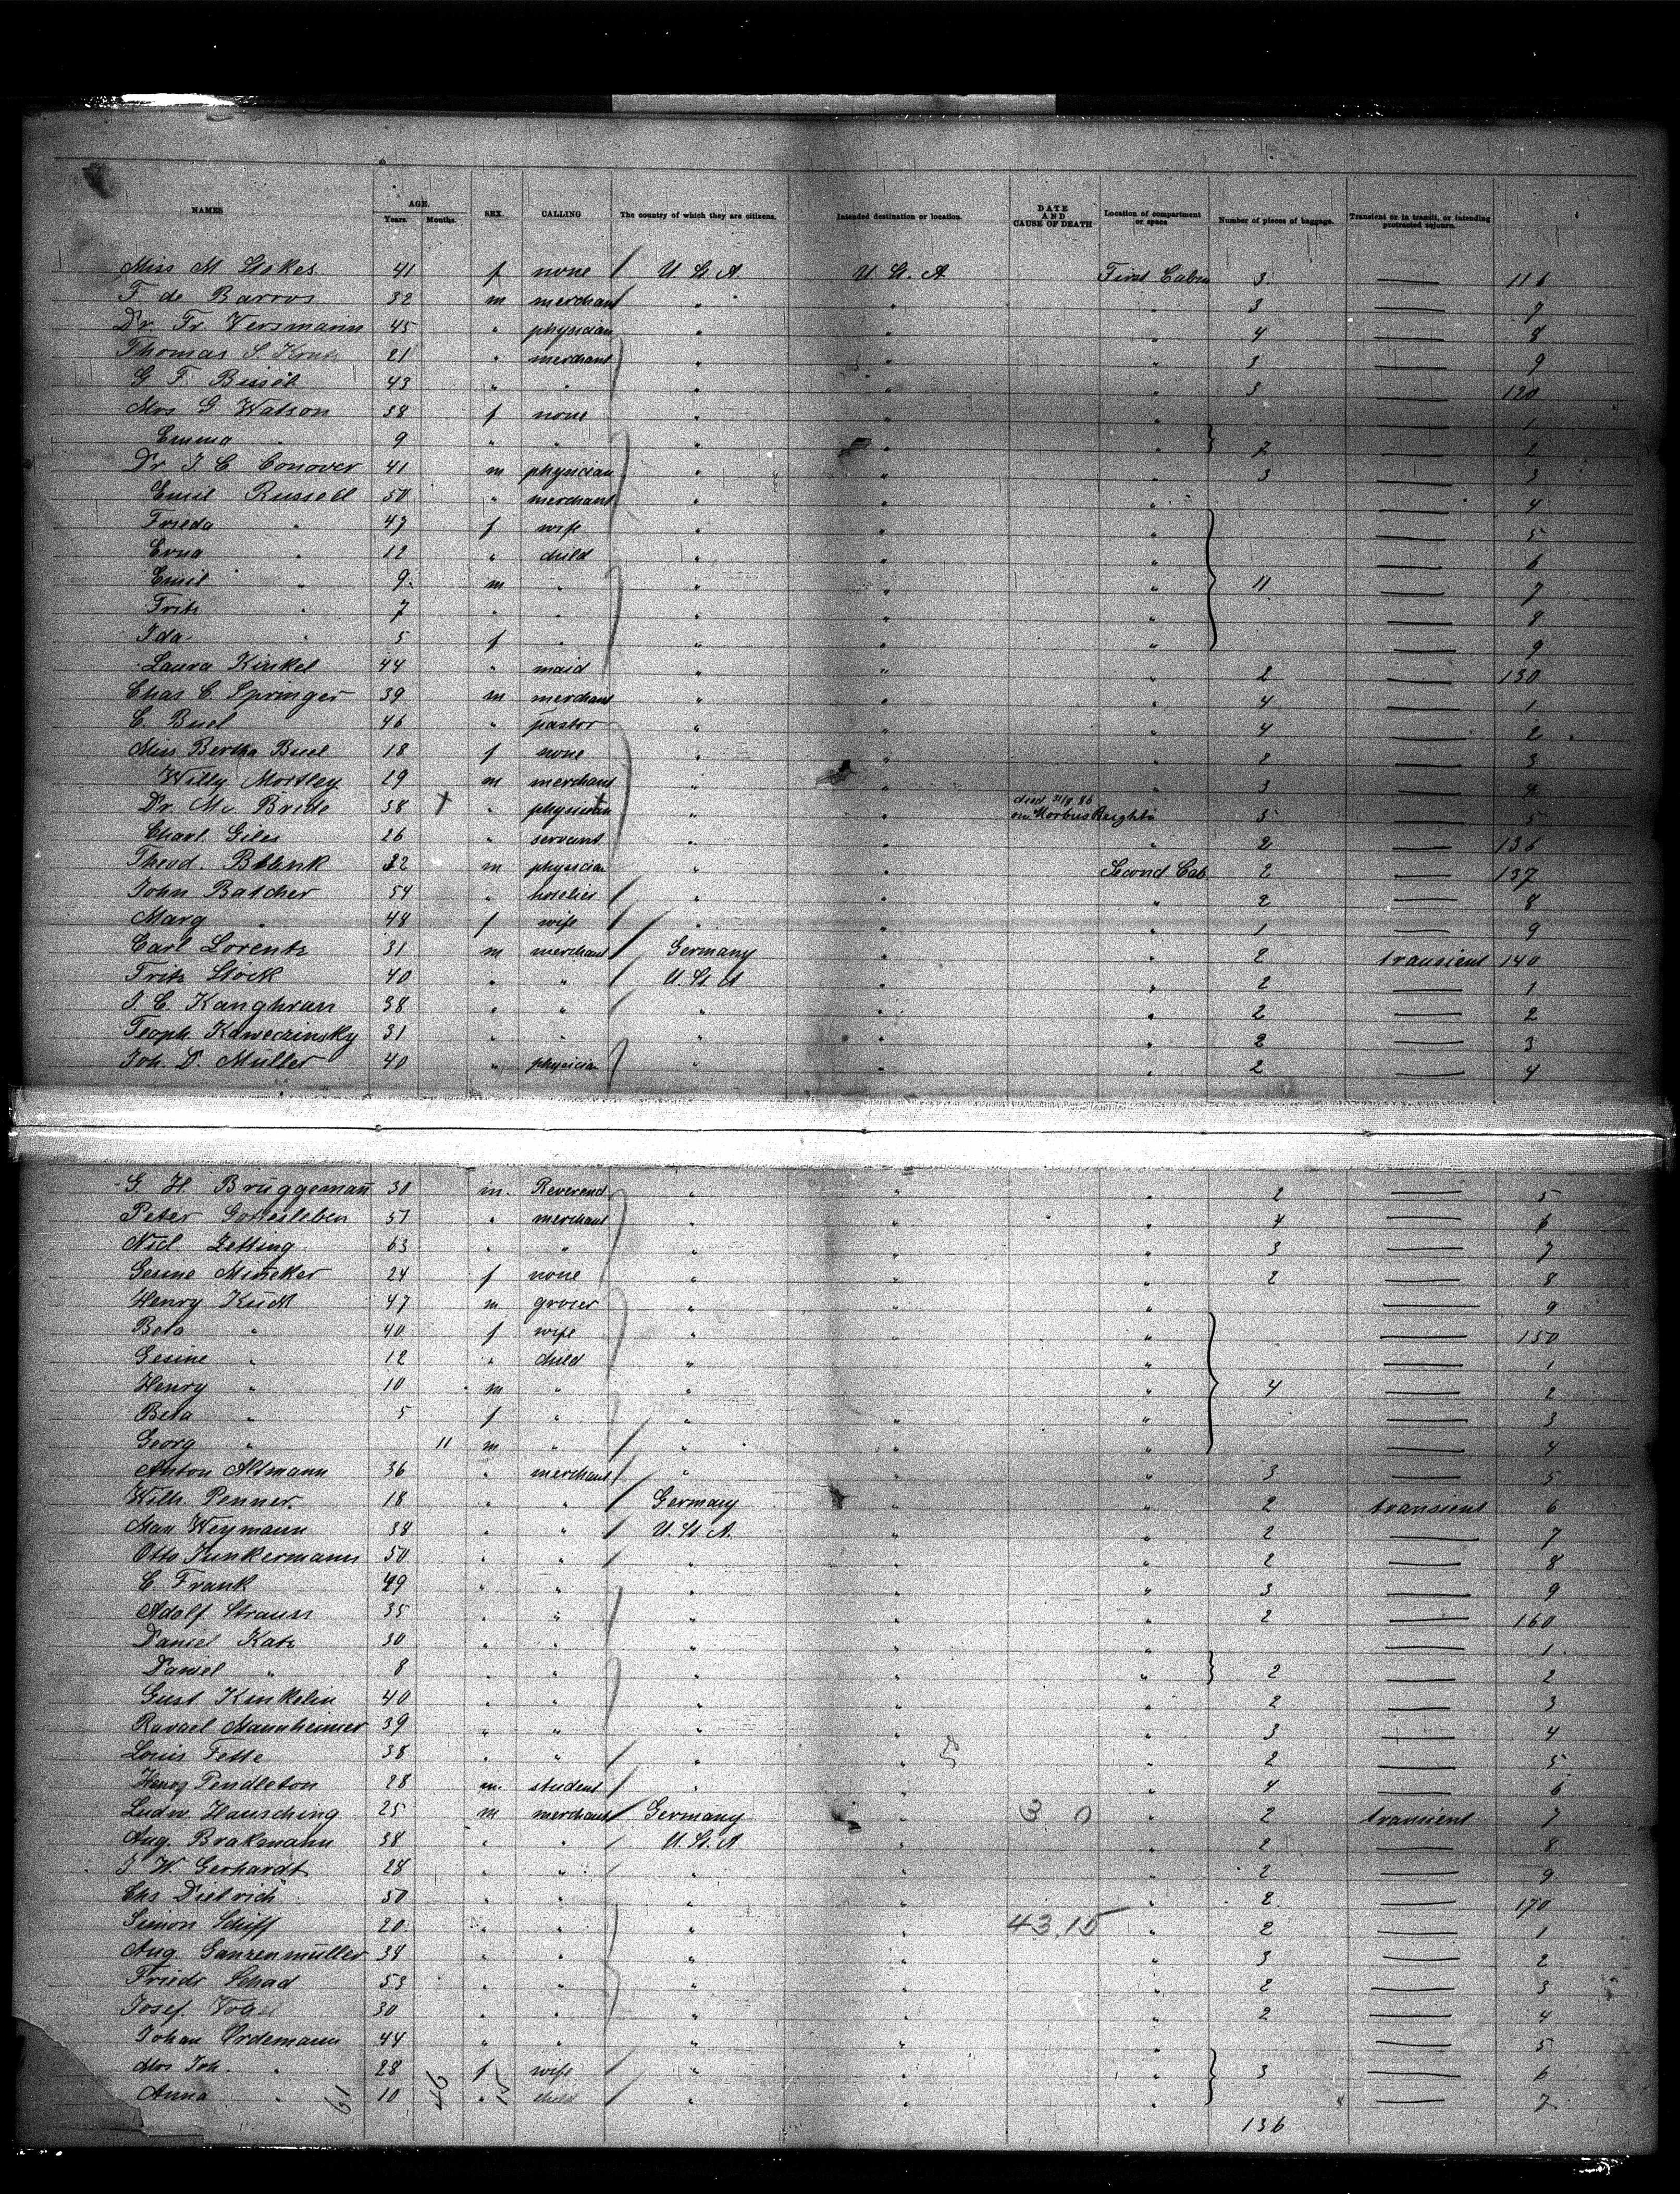 NAMES AGE. Years Months. SEX. CALLING The country of which they are citizens. Intended destination or location. DATE AND CAUSE OF DEATH Location of compartment or space Number of pieces of baggage. Transient or in transit, or intending protracted sojourn.
Miss M Stokes 41 f none U St A U St. A First Cabin 3 — 116
F de Barros 32 m merchant " " " 3 — 7
Dr. Fr Versmann 45 " physician " " " 4 — 8
Thomas S. 21 " merchant " " " 3 — 9
G F 43 " " " " " 3 — 120
Mrs G Watson 38 f none " " " — 1
Emma " 9 " " " " " 2 — 2
Dr J. C Conover 41 m physician " " " 3 — 3
Emil Russell 50 " merchant " " " — 4
Frieda " 47 f wife " " " — 5
Erna " 12 " child " " " — 6
Emil " 9 m " " " " 11 — 7
Fritz " 7 " " " " " — 8
Ida " 5 f " " " " — 9
Laura Kinkel 44 " maid " " " 2 — 130
Chas C. Springer 39 m merchant " " " 4 — 1
C. Buel 46 " pastor " " " 4 — 2
Miss Bertha Buel 18 f none " " " 2 — 3
Willy Mortley 29 m merchant " " " 3 — 4
Dr. Mc. Bride 38 " physician " " died 31/8 86 on Morbus Brightii 5 — 5
Charl. Giles 26 " servant " " " 2 — 136
Theod. 32 m physician " " Second Cab. 2 — 137
John Batcher 54 " hotelier " " " 2 — 8
Marg " 48 f wife " " " 1 — 9
Carl Lorentz 31 m merchant Germany " " 2 transient 140
Fritz Stock 40 " " U. St A " " 2 — 1
J. C. Kanghran 38 " " " " " 2 — 2
Teoph. Kaweczinsky 31 " " " " " 2 — 3
Joh. D. Müller 40 " physician " " " 2 — 4
G. H. Brüggemann 30 m. Reverend " " " 2 — 5
Peter Gottesleben 57 " merchant " " " 4 — 6
Nicl. Zetting 63 " " " " " 3 — 7
Gesine 24 f none " " " 2 — 8
Henry Kück 47 m grocer " " " — 9
Beta " 40 f wife " " " — 150
Gesine " 12 " child " " — 1
Henry " 10 m " " " 4 — 2
Beta " 5 f " " " " — 3
Georg " 11 m " " " " — 4
Anton Altmann 36 " merchant " " " 3 — 5
Wilh. Penner 18 " " Germany " " 2 transient 6
Max Weymann 38 " " U. St. A. " " 2 — 7
Otto Junkermann 50 " " " " " 2 — 8
C. Frank 49 " " " " " 3 — 9
Adolf Strauss 35 " " " " " 2 — 160
Daniel Katz 30 " " " " " — 1
Daniel " 8 " " " " " 2 — 2
Gust Kinkelin 40 " " " " " 2 — 3
Ravael Mannheimer 39 " " " " " 3 — 4
Louis Fette 38 " " " " " 2 — 5
Henry Pendleton 28 m. student " " " 4 — 6
Ludw. Hausching 25 m merchant Germany " 3 0 " 2 transient 7
Aug. Brakmann 38 " " U. St. A " " 2 — 8
J W. Gerhardt 28 " " " " " 2 — 9
Chs Dietrich 50 " " " " " 2 — 170
Simon Schiff 20 " " " " 43.15 " 2 — 1
Aug. Ganzenmüller 34 " " " " " 3 — 2
Friedr Schad 53 " " " " " 2 — 3
Josef Vogel 30 " " " " " 2 — 4
Johan Ordemann 44 " " " " " — 5
Mrs Joh. " 28 f wife " " " 3 — 6
Anna " 10 " child " " " — 7
61 46 15
136